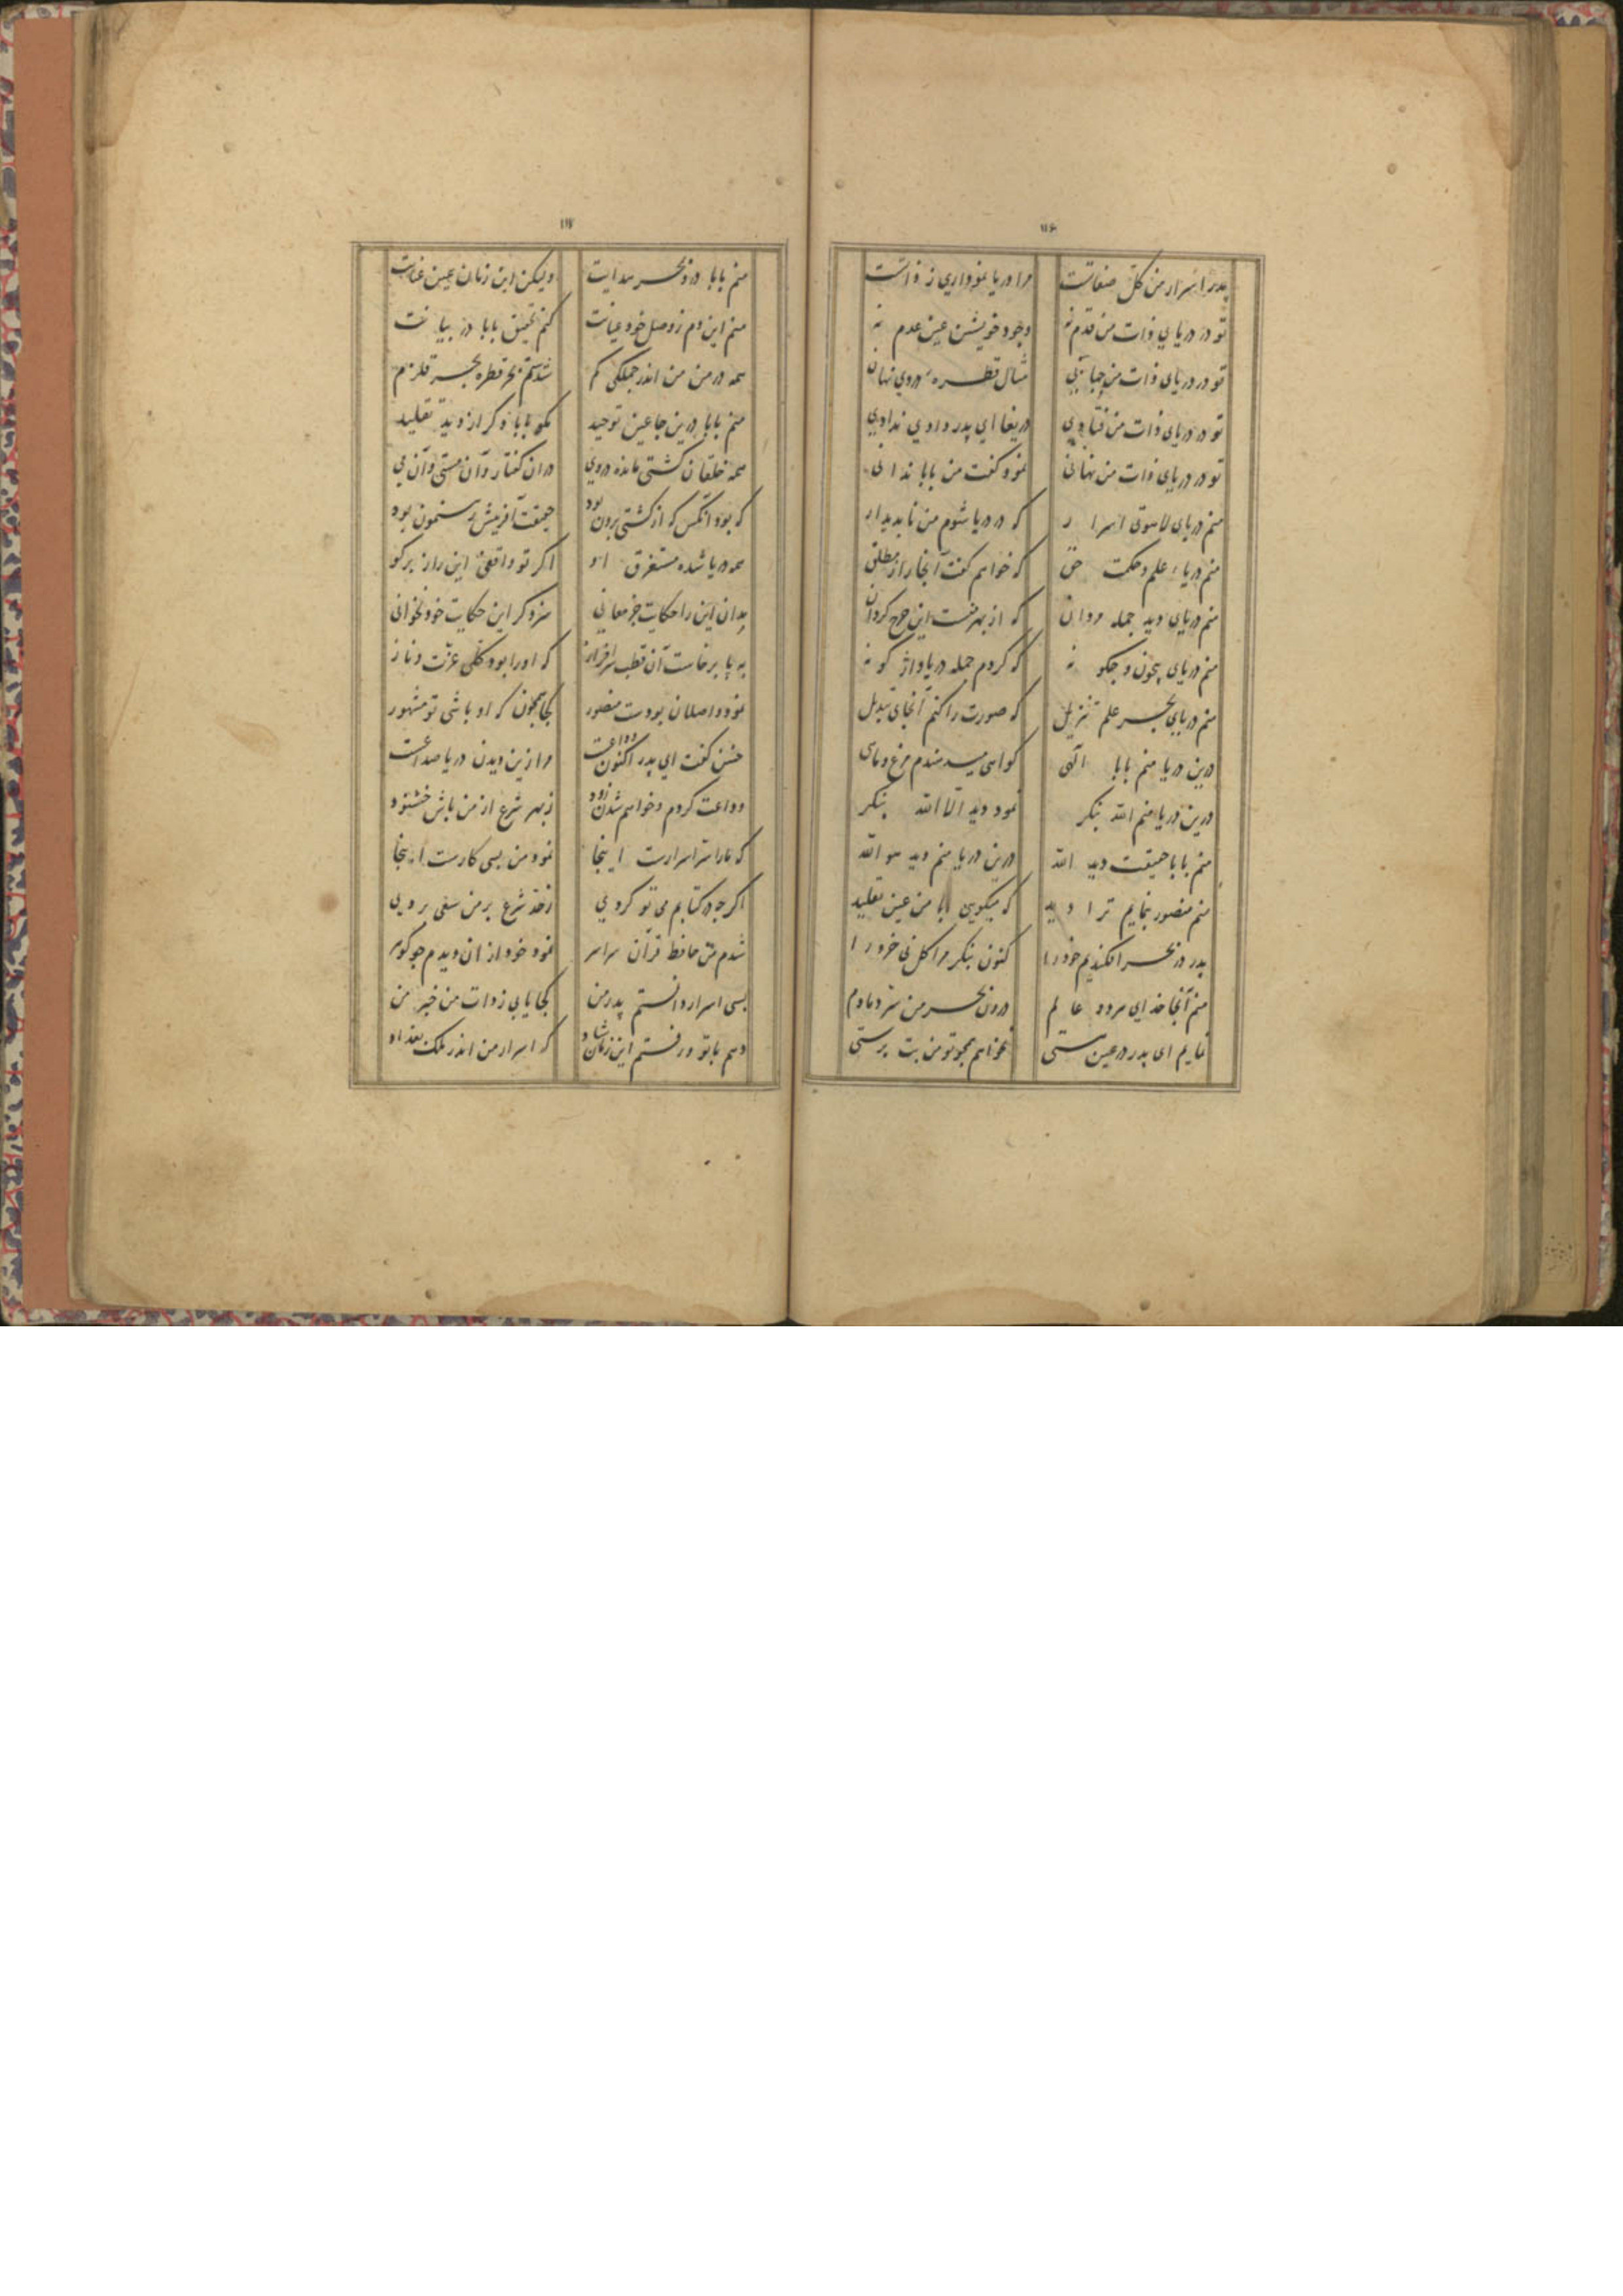 ۱۱۶
پدر اسرار من کل صفاتست مرا دریا نموداری ز ذاتست
تو در دریای ذات من قدم نه وجود خویشتن عین عدم نه
تو در دریای ذات من مثال قطره در وی نهان
تو در دریای ذات من فتادی دریغا ای پدر دادی ندادی
تو در دریای ذات من نهانی نمود کفت من بابا ندانی
منم دریای لاهوتی اسرار که در دریا شوم من ناپدیدار
منم دریاء علم و حکمت حق که خواهم کفت آنجا راز مطلق
منم دریای دید جمله مردان که از بهر منست این چرخ کردان
منم دریای بیچون و چکونه که کردم جمله دریا واژکونه
منم دریای بحر علم تنزیل که صورت را کنم آنجای تبدیل
درین دریا منم بابا الهی کواهی میدهندم مرغ و ماهی
درین دریا منم الله بنکر نمود دید الا الله بنکر
منم بابا حقیقت دید الله درین دریا منم دید هو الله
منم منصور بنمایم ترا دید که میکویی ابا من عین تقلید
پدر در بحر افکندیم خود را کنون بنکر مرا کل نی خرد را
منم آنجا خدای هر دو عالم درون بحر من هر دمادم
نمایم ای پدر در عین هستی نخواهم همچو تو من بت پرستی
۱۱۷
منم بابا درون بحر هدایت ولیکن این زمان عین عنایت
منم این دم ز وصل خود عیانت کنم تحقیق بابا در بیانت
همه در من من اندر جملکی کم شدستم بحر قطره بحر قلزم
منم بابا درین جا عین توحید مکو بابا دکر از دید تقلید
همه خلقان کشتی مانده در وی در آن کفتار و آن مستی و آن می
که بود آنکس که از کشتی برون بود حقیقت آفرینش رهنمون بود
همه دریا شده مستغرق او اکر تو واقفی این راز برکو
بدان این را حکایت جز معانی سزد کر این حکایت خود نخوانی
به پا برخاست آن قطب سرافراز که او را بود کلی عزت و ناز
نمود واصلان بودت منصور کجا همچون که او باشی تو مشهور
چنین کفت ای پدر اکنون وداعت مرا زین دیدن دریا صداعت
وداعت کردم و خواهم شدن زود ز بهر شرع از من باش خشنود
که ما را سر اسرارست اینجا نمود من بسی کارست اینجا
اکر چه در کتابم می تو کردی ز خود شرع بر من سعی بردی
شدم من حافظ قرآن سراسر نمود خود از آن دیدم چو کوهر
بسی اسرار دانستم پدر من کجا یابی ز ذات من خبر من
دهم با تو ورفستم این زمان شاد که اسرار من اندر ملک بغداد